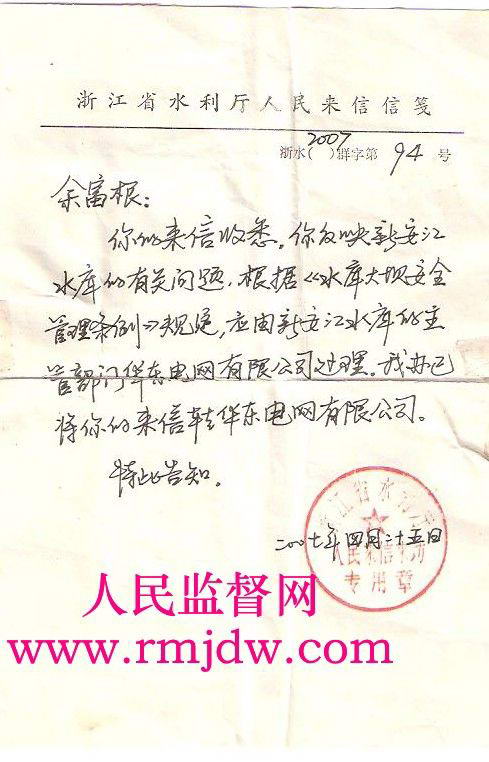 浙江省水利厅人民来信信笺
浙水(2007)群字第 94 号
余富根：
你的来信收悉。你反映新安江
水库的有关问题，根据《水库大坝安全
管理条例》规定，应由新安江水库的主
管部门华东电网有限公司处理。我办已
将你的来信转华东电网有限公司。
特此告知。
二00七年四月二十五日
浙江省水利厅
人民来信来访
专用章
人民监督网
www.rmjdw.com